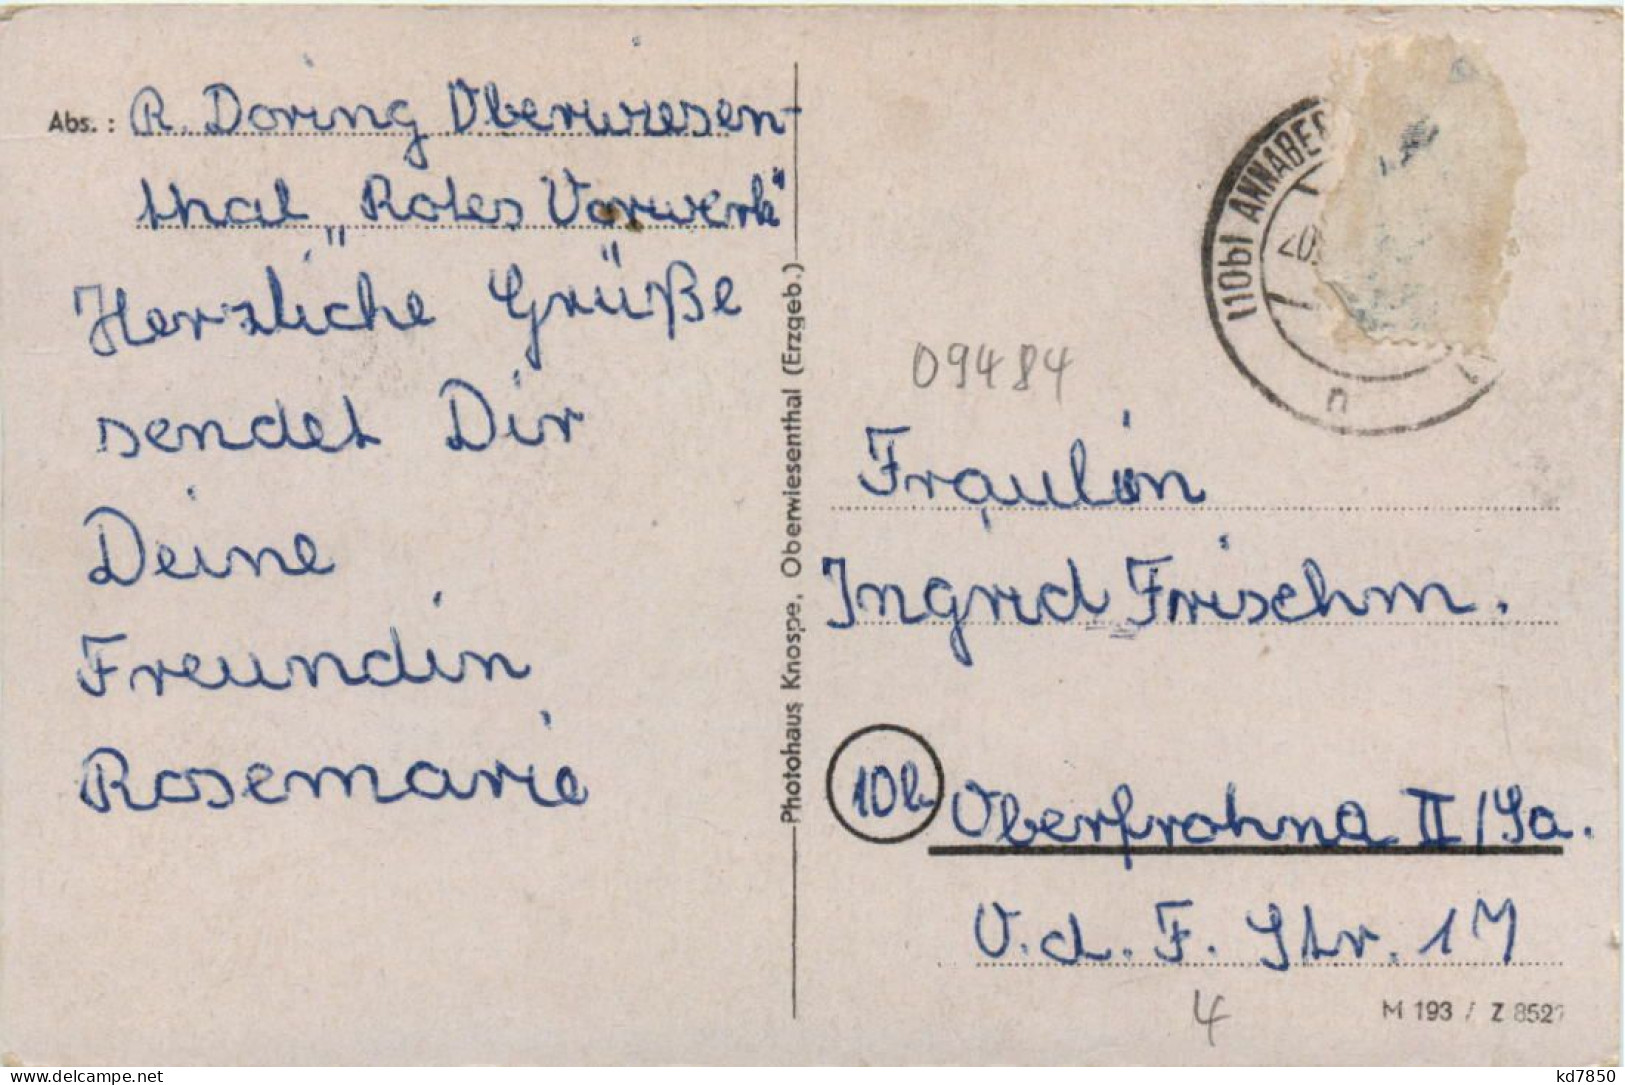 Abs.: R. Doring Oberwiesen-
thal „Rotes Vorwerk"
Herzliche Grüße
sendet Dir
Deine
Freundin
Rosemarie
Photohaus Knospe, Oberwiesenthal (Erzgeb.)
(10b) ANNABER
20.
n
09484
Fräulein
Ingrid Frischm.
10b Oberfrohna II/Sa.
V.d.F. Str. 17
4
M 193 / Z 8521
kd7850